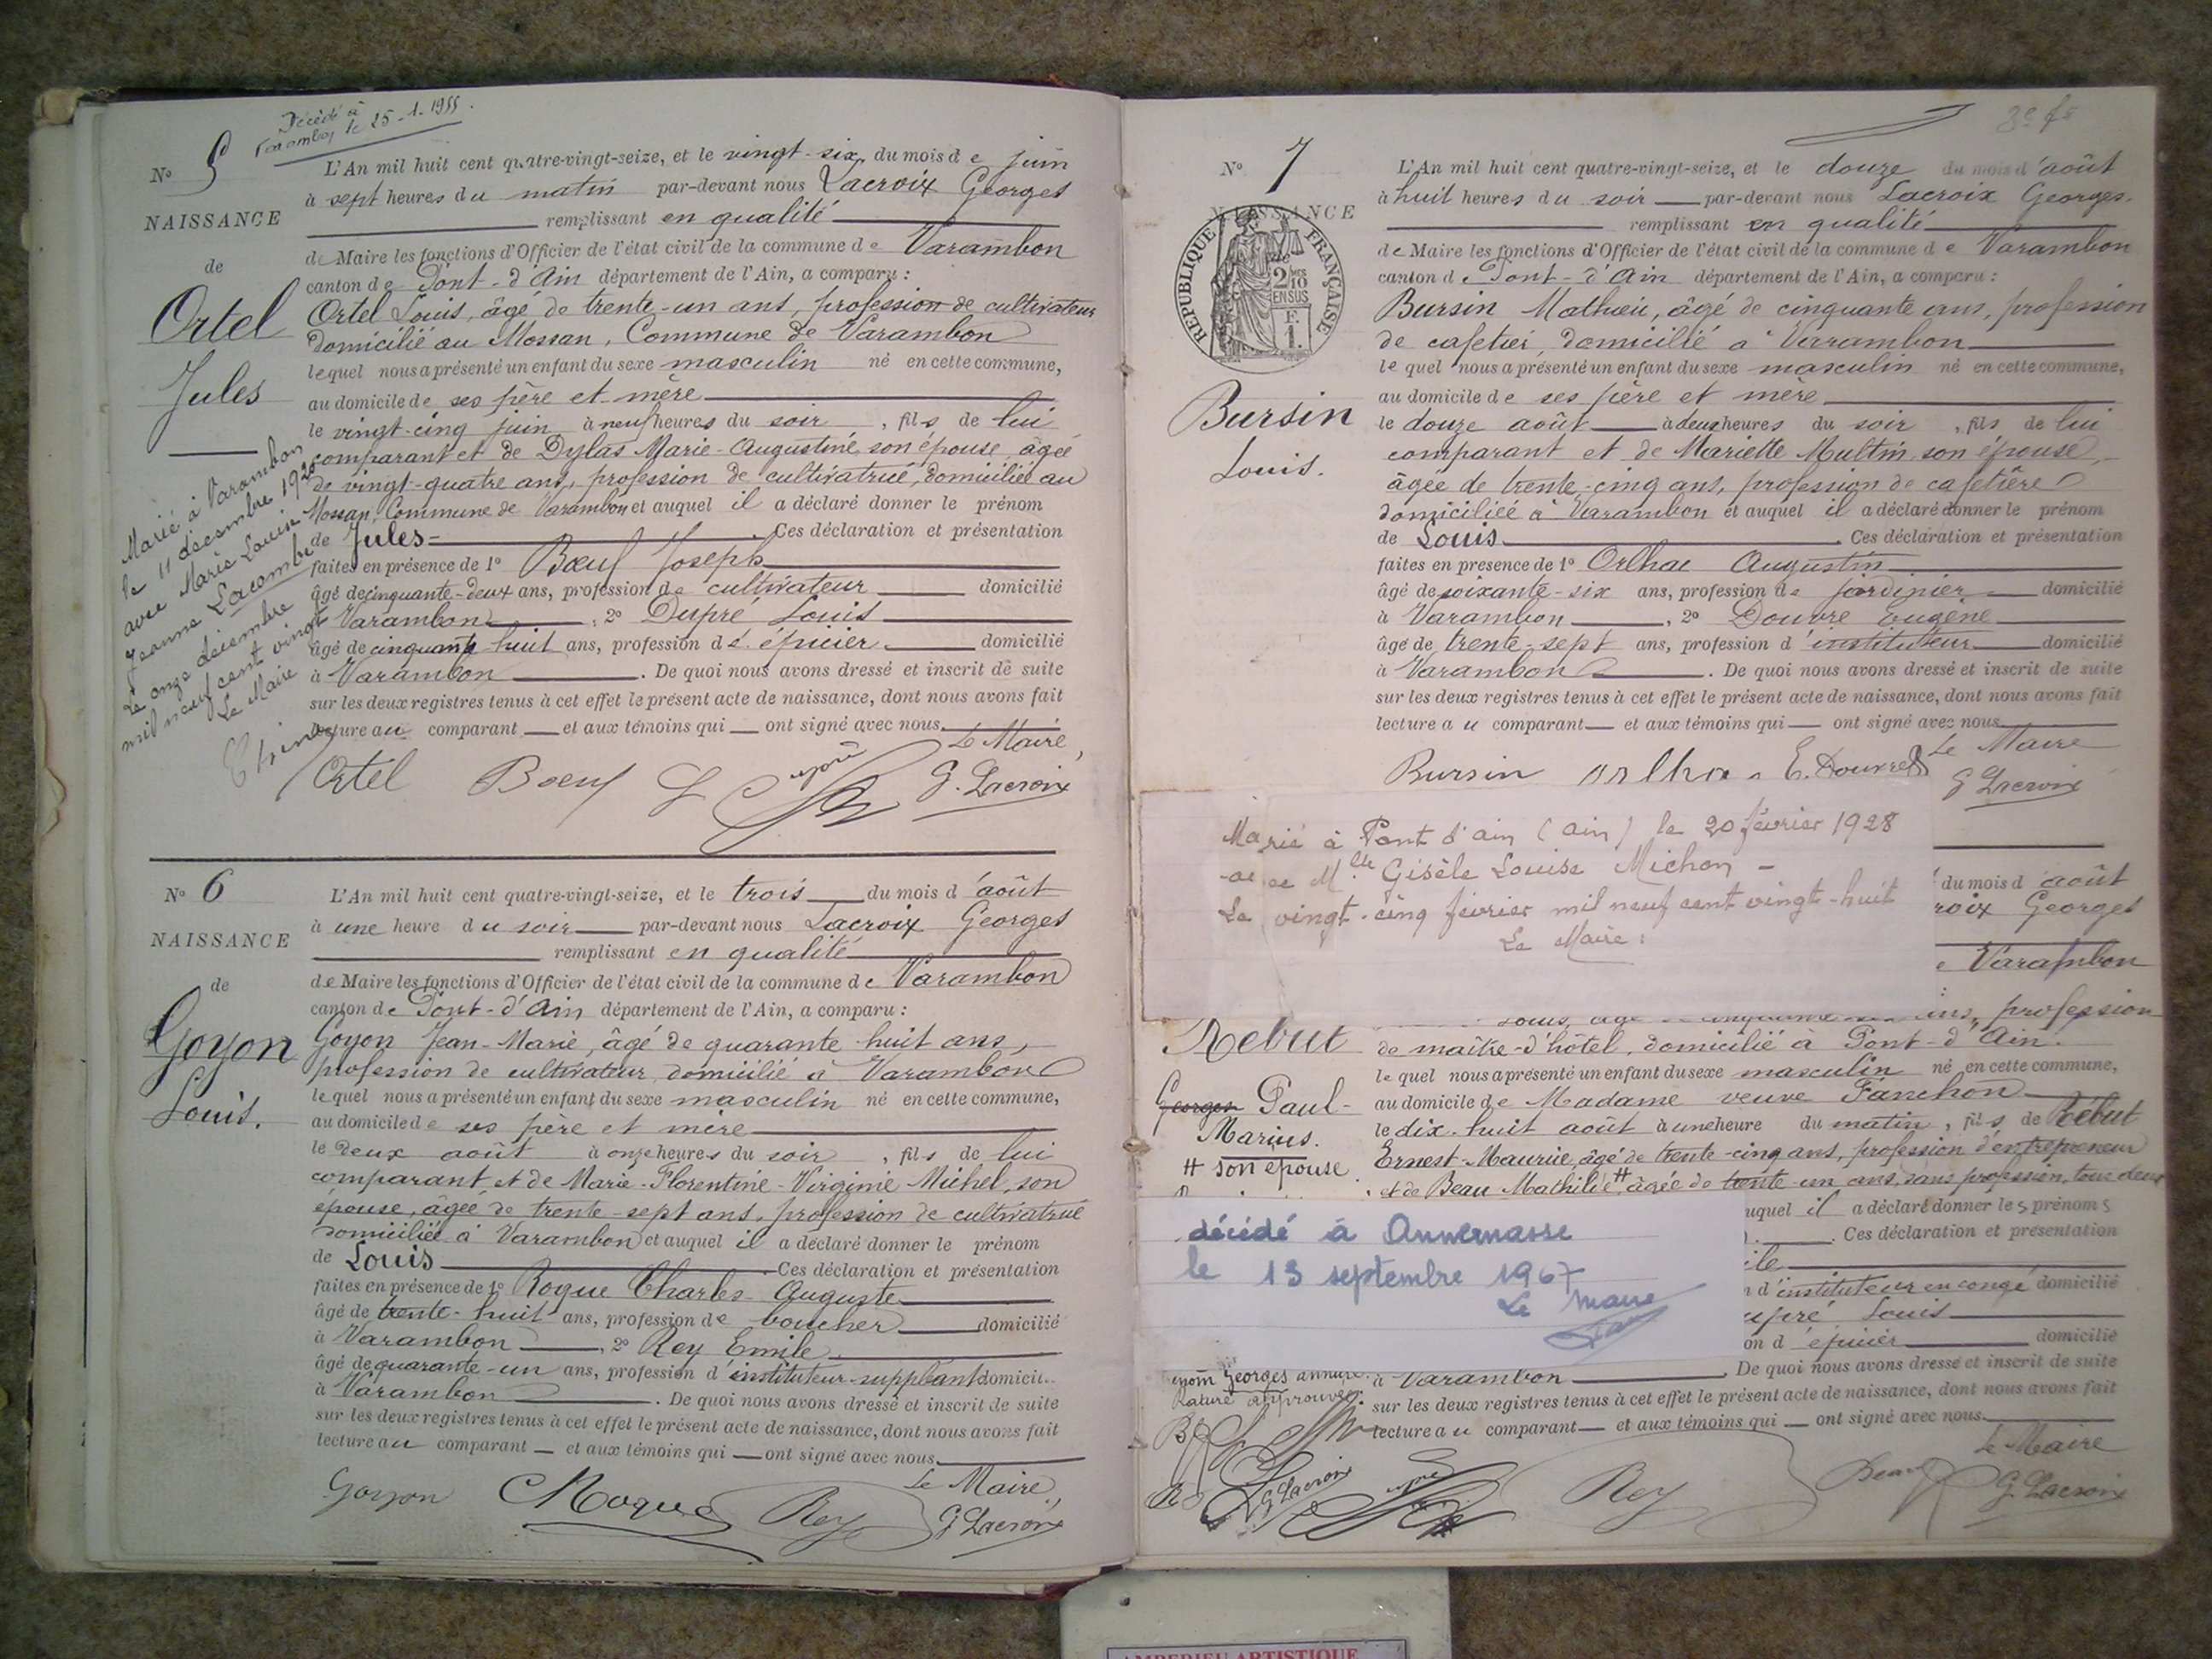 Décédé à
Varambon le 25-1-1955.
No 5
NAISSANCE
de
Ortel
Jules
Marié à Varambon
le 11 décembre 1920
avec Marie Louise
Jeanne Lacombe
Le onze décembre
mil neuf cent vingt
Le Maire
L'An mil huit cent quatre-vingt-seize, et le vingt-six, du mois de juin
à sept heures du matin par-devant nous Lacroix Georges
remplissant en qualité
de Maire les fonctions d'Officier de l'état civil de la commune de Varambon
canton de Pont-d'Ain département de l'Ain, a comparu :
Ortel Louis, âgé de trente-un ans, profession de cultivateur
domicilié au Mossan, Commune de Varambon
lequel nous a présenté un enfant du sexe masculin né en cette commune,
au domicile de ses père et mère
le vingt-cinq juin à neuf heures du soir, fils de lui
comparant et de Dylas Marie-Augustine, son épouse, âgée
de vingt-quatre ans, profession de cultivatrice, domiciliée au
Mossan, Commune de Varambon et auquel il a déclaré donner le prénom
de Jules Ces déclaration et présentation
faites en présence de 1° Bœuf Joseph
âgé de cinquante-deux ans, profession de cultivateur domicilié
à Varambon, 2° Dupré Louis
âgé de cinquante huit ans, profession d'épicier domicilié
à Varambon. De quoi nous avons dressé et inscrit de suite
sur les deux registres tenus à cet effet le présent acte de naissance, dont nous avons fait
lecture au comparant et aux témoins qui ont signé avec nous.
Le Maire,
Ortel Boeuf G. Lacroix
No 6
NAISSANCE
de
Goyon
Louis.
L'An mil huit cent quatre-vingt-seize, et le trois du mois d'août
à une heure du soir par-devant nous Lacroix Georges
remplissant en qualité
de Maire les fonctions d'Officier de l'état civil de la commune de Varambon
canton de Pont-d'Ain département de l'Ain, a comparu :
Goyon Jean-Marie, âgé de quarante huit ans,
profession de cultivateur, domicilié à Varambon
lequel nous a présenté un enfant du sexe masculin né en cette commune,
au domicile de ses père et mère
le deux août à onze heures du soir, fils de lui
comparant et de Marie-Florentine-Virginie Michel, son
épouse, âgée de trente-sept ans, profession de cultivatrice
domiciliée à Varambon et auquel il a déclaré donner le prénom
de Louis Ces déclaration et présentation
faites en présence de 1° Roque Charles-Auguste
âgé de trente-huit ans, profession de boucher domicilié
à Varambon, 2° Rey Emile
âgé de quarante-un ans, profession d'instituteur-suppléant domicil..
à Varambon. De quoi nous avons dressé et inscrit de suite
sur les deux registres tenus à cet effet le présent acte de naissance, dont nous avons fait
lecture au comparant et aux témoins qui ont signé avec nous.
Le Maire,
Goyon CRoque Rey G Lacroix
No 7
NAISSANCE
RÉPUBLIQUE FRANÇAISE
2 MES
10
EN SUS
F.
1.
Bursin
Louis.
L'An mil huit cent quatre-vingt-seize, et le douze du mois d'août
à huit heures du soir par-devant nous Lacroix Georges.
remplissant en qualité
de Maire les fonctions d'Officier de l'état civil de la commune de Varambon
canton de Pont-d'Ain département de l'Ain, a comparu :
Bursin Mathieu, âgé de cinquante ans, profession
de cafetier, domicilié à Varambon
lequel nous a présenté un enfant du sexe masculin né en cette commune,
au domicile de ses père et mère
le douze août à deux heures du soir, fils de lui
comparant et de Mariette Multin, son épouse,
âgée de trente-cinq ans, profession de cafetière
domiciliée à Varambon et auquel il a déclaré donner le prénom
de Louis. Ces déclaration et présentation
faites en présence de 1° Orlhac Augustin
âgé de soixante-six ans, profession de jardinier domicilié
à Varambon, 2° Douvre Eugène
âgé de trente-sept ans, profession d'instituteur domicilié
à Varambon. De quoi nous avons dressé et inscrit de suite
sur les deux registres tenus à cet effet le présent acte de naissance, dont nous avons fait
lecture au comparant et aux témoins qui ont signé avec nous.
Le Maire
Bursin Orlhac E. Douvre G Lacroix
Marié à Pont d'ain (ain) le 20 février 1928
avec Mlle Gisèle Louise Michon -
Le vingt-cinq février mil neuf cent vingt-huit
Le Maire :
du mois d'août
roix Georges
e Varambon
ans, profession
Rebut
Georges Paul-
Marius.
# son épouse
de maître-d'hôtel, domicilié à Pont-d'Ain.
lequel nous a présenté un enfant du sexe masculin né en cette commune,
au domicile de Madame veuve Fanchon
le dix-huit août à une heure du matin, fils de Rebut
Ernest-Maurice, âgé de trente-cinq ans, profession d'entrepreneur
et de Beau Mathilde #, âgée de trente-un ans, sans profession, tous deux
uquel il a déclaré donner les prénoms
Ces déclaration et présentation
décédé à Annemasse
le 13 septembre 1967
Le Maire
n d'instituteur en congé domicilié
upré Louis
on d'épicier domicilié
De quoi nous avons dressé et inscrit de suite
à Varambon
Georges annulé.
Rature approuvée.
sur les deux registres tenus à cet effet le présent acte de naissance, dont nous avons fait
lecture au comparant et aux témoins qui ont signé avec nous.
Le Maire
G Lacroix Rey Beau G. Lacroix
AMBERIEU ARTISTIQUE